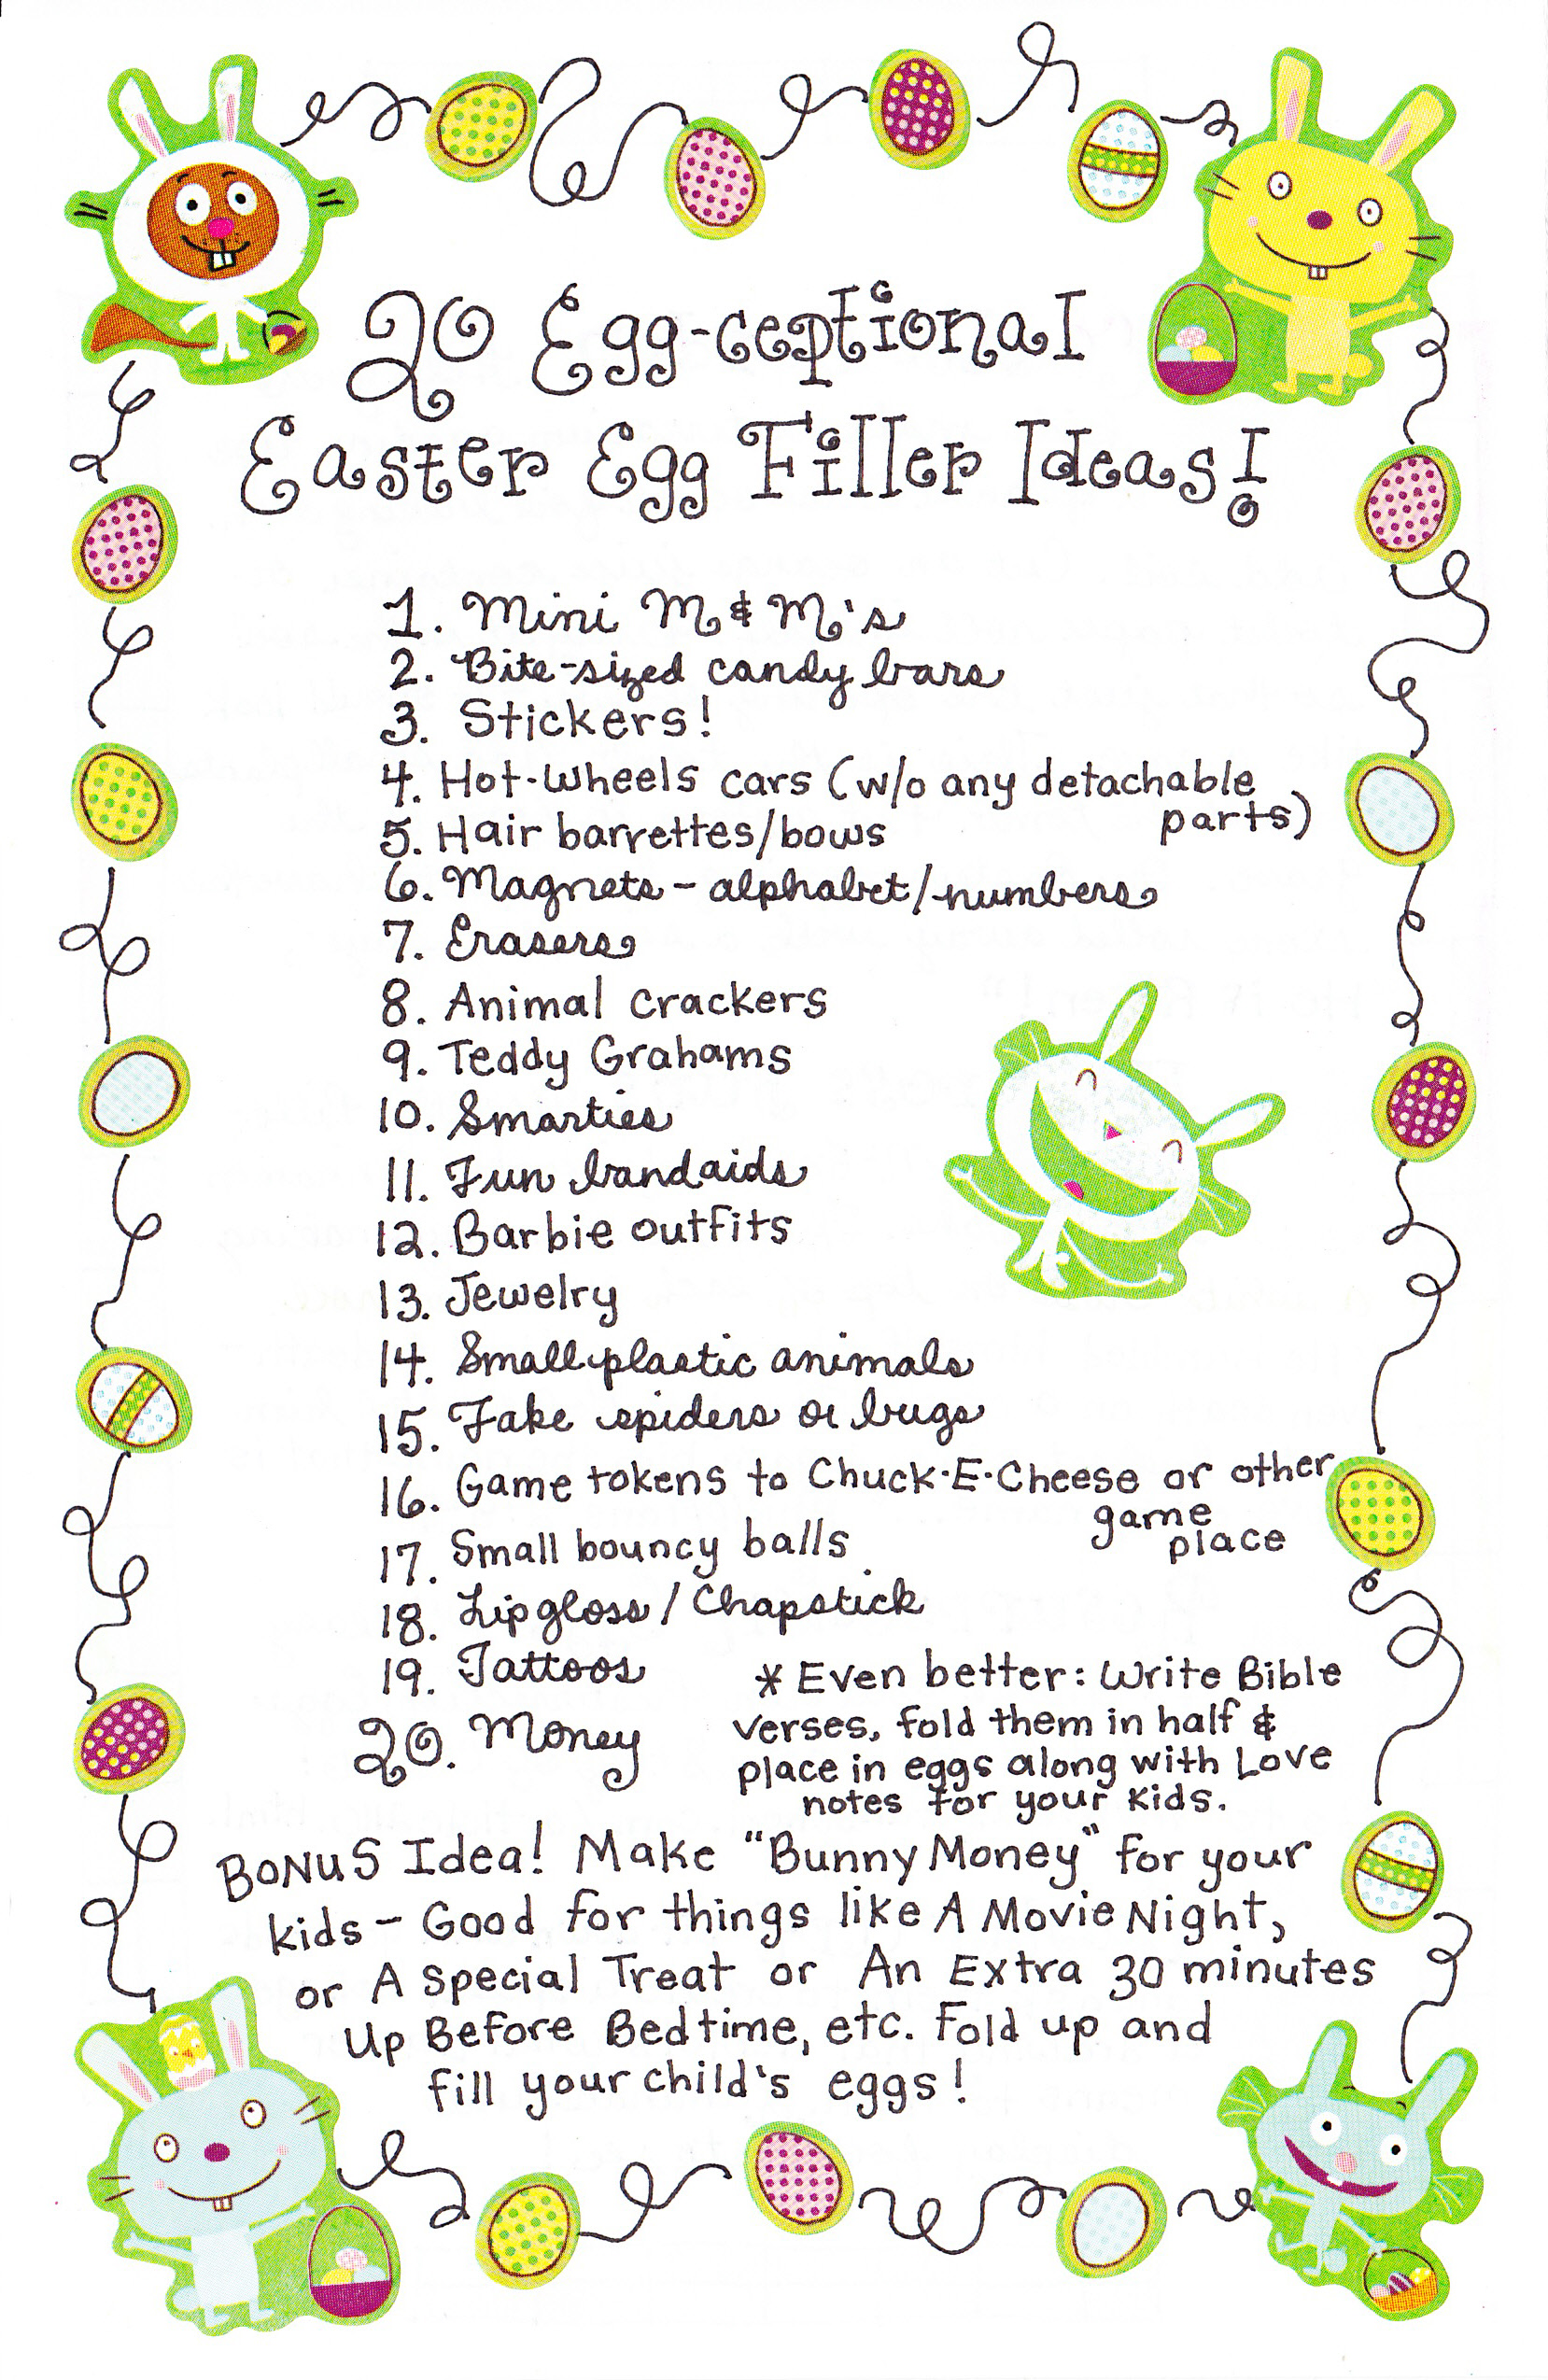 20 Egg-ceptional
Easter Egg Filler Ideas!
1. Mini M & M's
2. Bite-sized candy bars
3. Stickers!
4. Hot-Wheels cars (w/o any detachable
parts)
5. Hair barrettes/bows
6. Magnets - alphabet/numbers
7. Erasers
8. Animal crackers
9. Teddy Grahams
10. Smarties
11. Fun bandaids
12. Barbie outfits
13. Jewelry
14. Small plastic animals
15. Fake spiders or bugs
16. Game tokens to Chuck-E-Cheese or other
game
place
17. Small bouncy balls
18. Lipgloss / Chapstick
19. Tattoos
20. Money
* Even better: Write Bible
verses, fold them in half &
place in eggs along with Love
notes for your kids.
BONUS Idea! Make "Bunny Money" for your
kids - Good for things like A Movie Night,
or A Special Treat or An Extra 30 minutes
Up Before Bedtime, etc. Fold up and
fill your child's eggs!